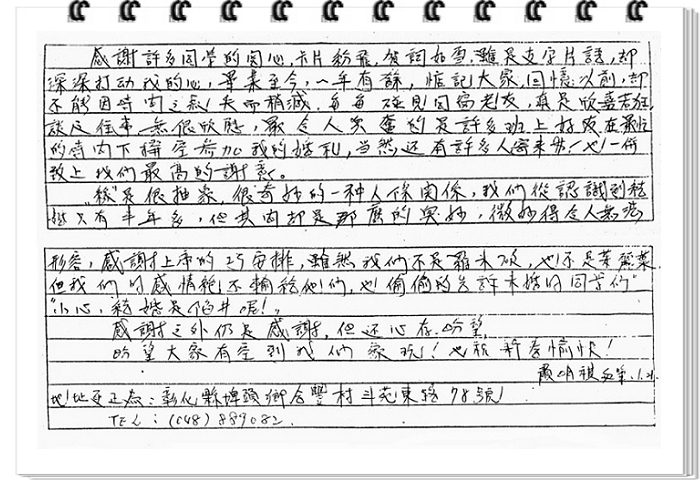 感謝許多同学的関心,卡片紛飛,賀詞如雪,雖是支字片語,却
深深打动我的心,畢業至今,一年有餘,惦記大家,回憶以前,却
不能因時间之流失而稍減,每每碰見同窗老友,真是欣喜若狂
談及往事無限欣慰,最令人興奮的是許多班上好友在最忙
的時间下撥空参加我的婚礼,当然还有許多人寄來 也一併
致上我們最高的謝意。
"緣"是很抽象、很奇妙的一种人際関係,我們從認識到結
婚只有半年多,但其间却是那麼的奧妙,微妙得令人無法
形容,感謝上帝的巧安排,雖然我們不是羅米欧,也不是茱麗葉
但我們的感情絕不輸給他們,也偷偷的告訴未婚的同学们"
"小心,結婚是陷井喔!"
感謝之外仍是感謝,但还心存盼望
盼望大家有空到我們家玩!也祝新春愉快!
明祺 1.21.
地址更正為:彰化縣埤頭鄉合豐村斗苑東路78號
TEL:(048)889082.